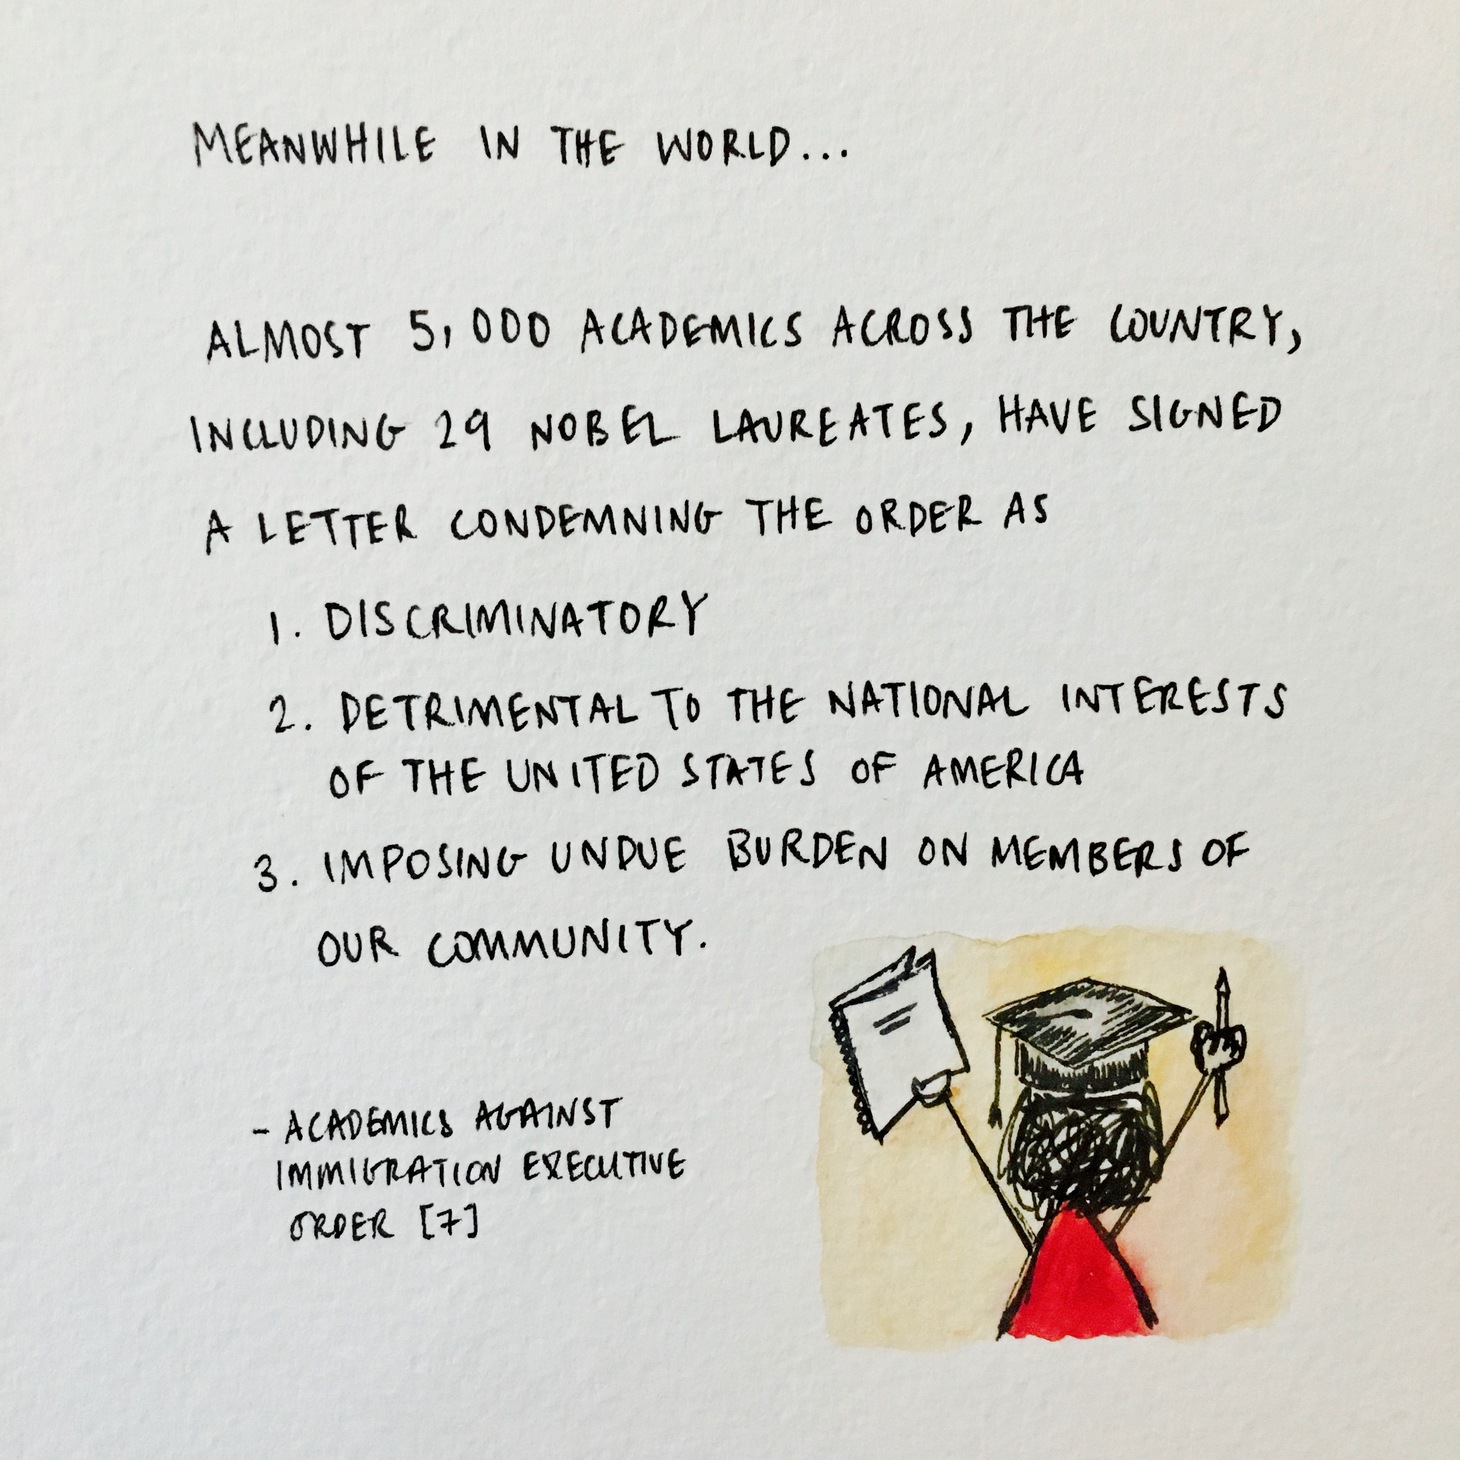 MEANWHILE IN THE WORLD...
ALMOST 5,000 ACADEMICS ACROSS THE COUNTRY,
INCLUDING 29 NOBEL LAUREATES, HAVE SIGNED
A LETTER CONDEMNING THE ORDER AS
1. DISCRIMINATORY
2. DETRIMENTAL TO THE NATIONAL INTERESTS
OF THE UNITED STATES OF AMERICA
3. IMPOSING UNDUE BURDEN ON MEMBERS OF
OUR COMMUNITY.
- ACADEMICS AGAINST
IMMIGRATION EXECUTIVE
ORDER [7]